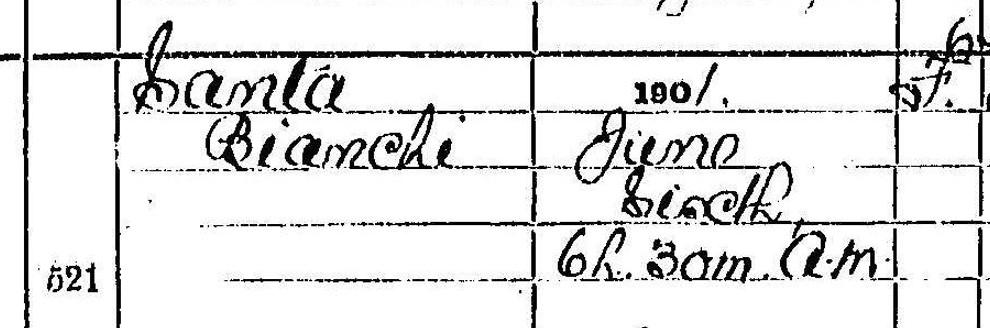 Santa
Bianchi
1901.
June
Sixth,
6h. 30m. A.M.
521